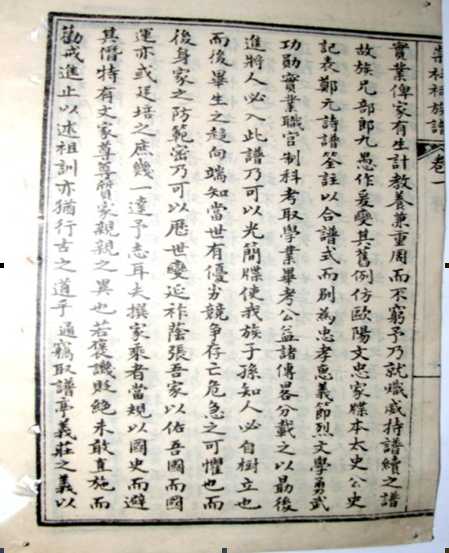 族譜 卷一
實業俾家有生計教養兼重周而不窮予乃就
持譜續之譜
故族兄部郎九愚作爰變其舊例仿歐陽文忠家牒本太史公史
記表鄭元詩譜箋註以合譜式而別為忠孝惠義節烈文學勇武
功勛實業職官制科考取學業畢考公益諸傳畧分載之以最後
進將人必入此譜乃可以光簡牒使我族子孫知人必自樹立也
而後畢生之趨向端知當世有優劣競爭存亡危急之可懼也而
後身家之防範密乃可以歷世變延祚蔭張吾家以佑吾國而國
運亦或廷培之庶幾一達予志耳夫撰家乘者當規以國史而避
其僭特有文家尊尊質家親親之異也若褒譏貶絕未敢直施而
勸戒進止以述祖訓亦猶行古之道乎通竊取譜亭義莊之義以